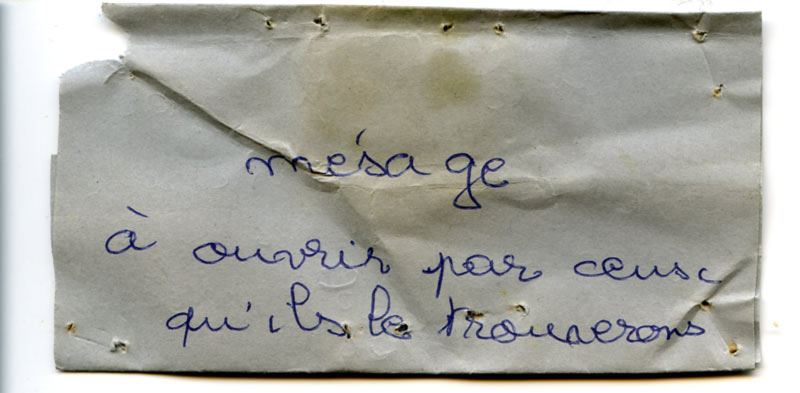 mésage
à ouvrir par ceux
qu'ils le trouverons